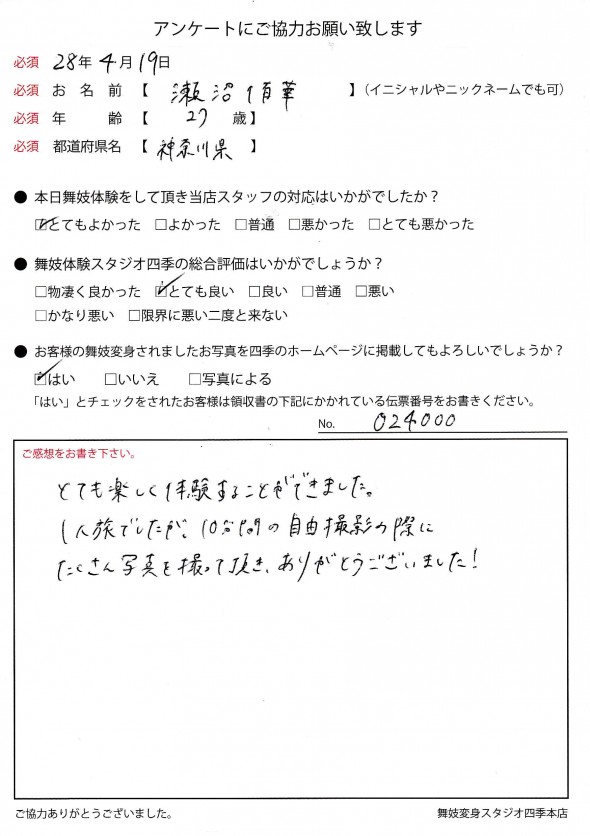 アンケートにご協力お願い致します
必須 28年4月19日
必須 お名前【 瀬沼 華 】(イニシャルやニックネームでも可)
必須 年齢【 27 歳】
必須 都道府県名【 神奈川県 】
● 本日舞妓体験をして頂き当店スタッフの対応はいかがでしたか？
☑とてもよかった □よかった □普通 □悪かった □とても悪かった
● 舞妓体験スタジオ四季の総合評価はいかがでしょうか？
□物凄く良かった ☑とても良い □良い □普通 □悪い
□かなり悪い □限界に悪い二度と来ない
● お客様の舞妓変身されましたお写真を四季のホームページに掲載してもよろしいでしょうか？
☑はい □いいえ □写真による
「はい」とチェックをされたお客様は領収書の下記にかかれている伝票番号をお書きください。
No. 024000
ご感想をお書き下さい。
とても楽しく体験することができました。
1人旅でしたが、10分間の自由撮影の際に
たくさん写真を撮って頂き、ありがとうございました！
ご協力ありがとうございました。
舞妓変身スタジオ四季本店